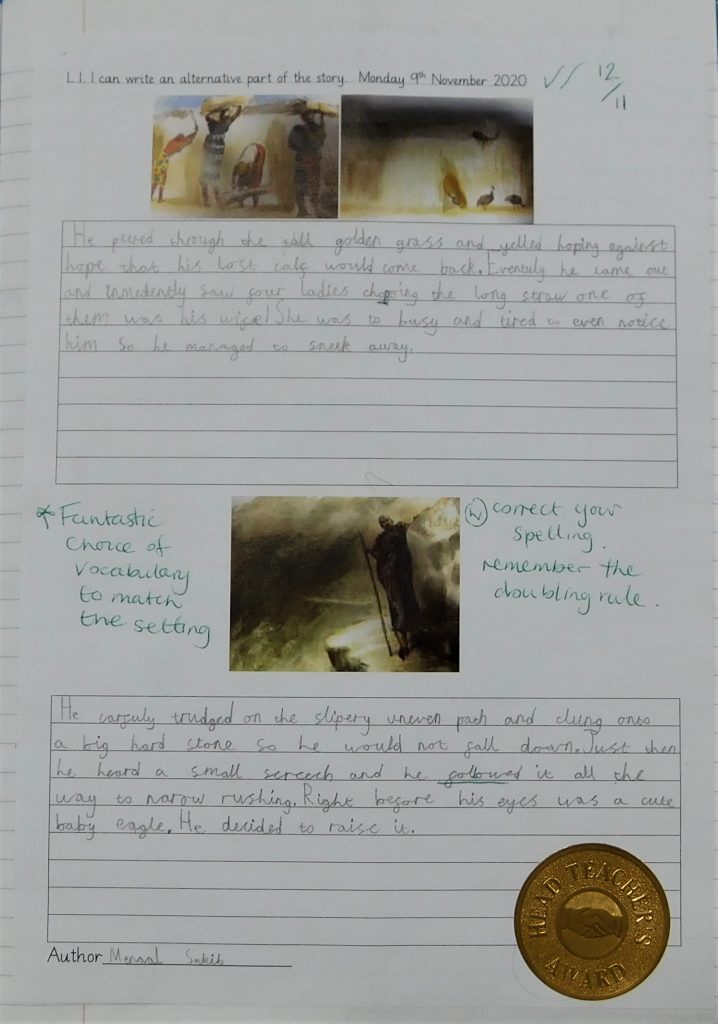 L.I. I can write an alternative part of the story. Monday 9th November 2020
12/11
He peered through the tall golden grass and yelled hoping against
hope that his lost calf would come back. Eventuly he came out
and inmedently saw four ladies choping the long straw one of
them was his wife! She was to busy and tired to even notice
him so he managed to sneek away.
* Fantastic
Choice of
vocabulary
to match
the setting
correct your
spelling.
remember the
doubling rule.
He carfuly trudged on the slipery uneven path and clung onto
a big hard stone so he would not fall down. Just then
he heard a small screech and he followed it all the
way to narow rushing. Right before his eyes was a cute
baby eagle. He decided to raise it.
Author Sakib
HEAD TEACHER'S
AWARD